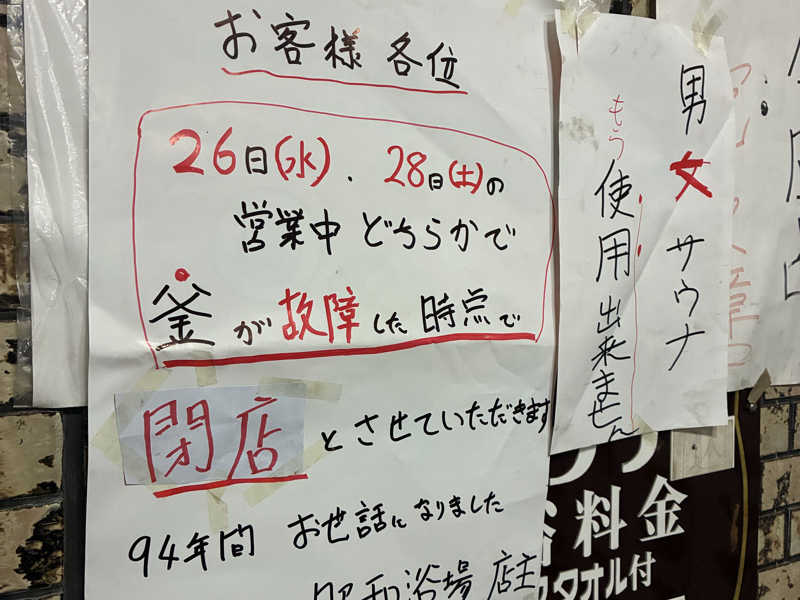 お客様 各位
26日(水)、28日(土)の
営業中どちらかで
釜が故障した時点で
閉店とさせていただきます
94年間 お世話になりました
昭和浴場 店主
男女サウナ
もう使用出来ません
料金
タオル付